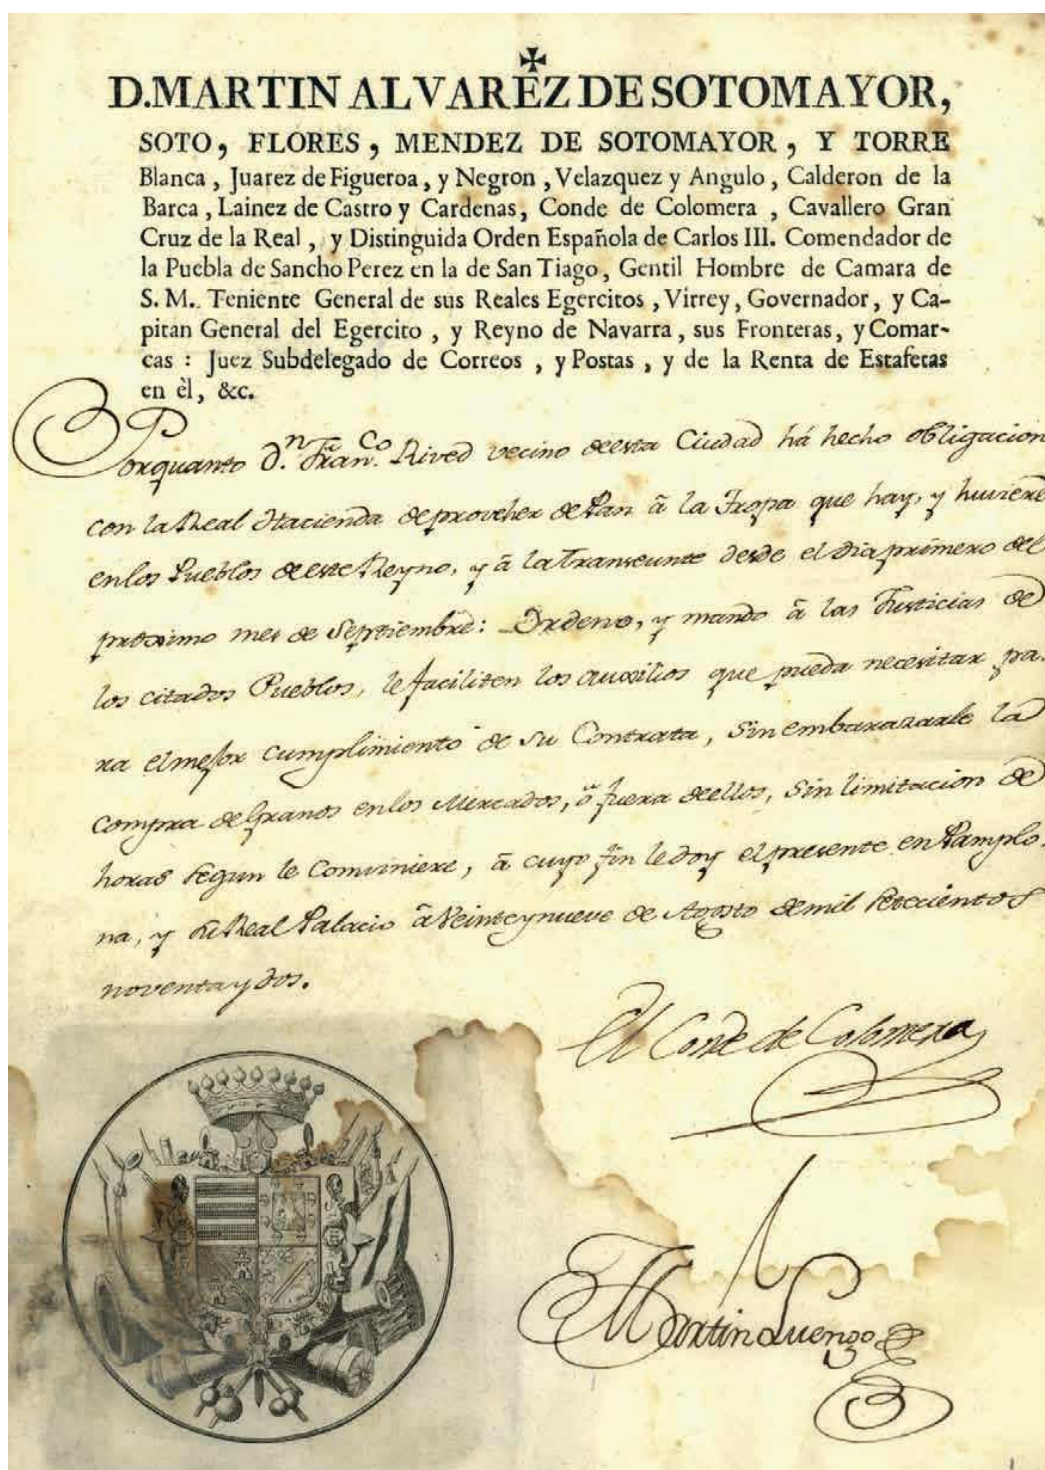 ✠
D. MARTIN ALVAREZ DE SOTOMAYOR,
SOTO, FLORES, MENDEZ DE SOTOMAYOR, Y TORRE
Blanca, Juarez de Figueroa, y Negron, Velazquez y Angulo, Calderon de la
Barca, Lainez de Castro y Cardenas, Conde de Colomera, Cavallero Gran
Cruz de la Real, y Distinguida Orden Española de Carlos III. Comendador de
la Puebla de Sancho Perez en la de San Tiago, Gentil Hombre de Camara de
S. M. Teniente General de sus Reales Egercitos, Virrey, Governador, y Ca-
pitan General del Egercito, y Reyno de Navarra, sus Fronteras, y Comar-
cas: Juez Subdelegado de Correos, y Postas, y de la Renta de Estafetas
en èl, &c.
Porquanto D.n Fran.co Rived vecino de esta Ciudad há hecho obligacion
con la Real Hacienda de proveher de Pan â la Tropa que hay, y huviere
en los Pueblos de este Reyno, y â la transeunte desde el dia primero del
proximo mes de Septiembre: Ordeno, y mando â las Justicias de
los citados Pueblos, le faciliten los auxilios que pueda necesitar pa-
ra el mejor cumplimiento de su Contrata, sin embarazarle la
compra de granos en los Mercados, ô fuera de ellos, sin limitacion de
horas segun le conviniere, â cuyo fin le doy el presente en Pamplo-
na, y su Real Palacio â Veinte y nueve de Agosto de mil setecientos
noventa y dos.
El Conde de Colomera
Martin Luengo